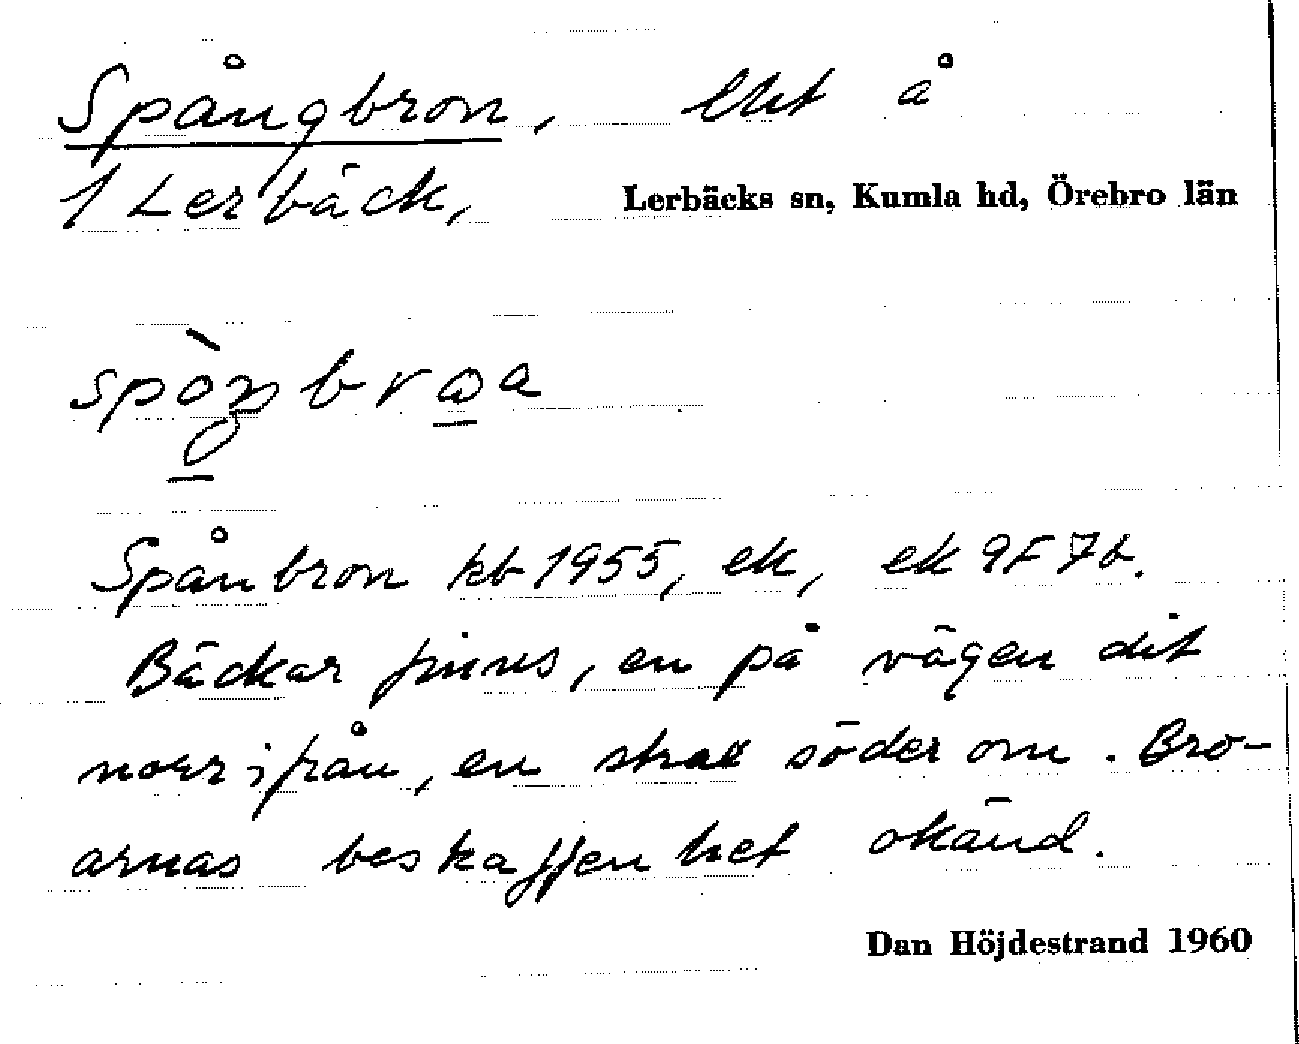 Spångbron, lht å
1 Lerbäck, Lerbäcks sn, Kumla hd, Örebro län
Spånbron kb 1955, ek, ek 9F 7b.
Bäckar finns, en på vägen dit
norrifrån, en strax söder om. Bro-
arnas beskaffenhet okänd.
Dan Höjdestrand 1960